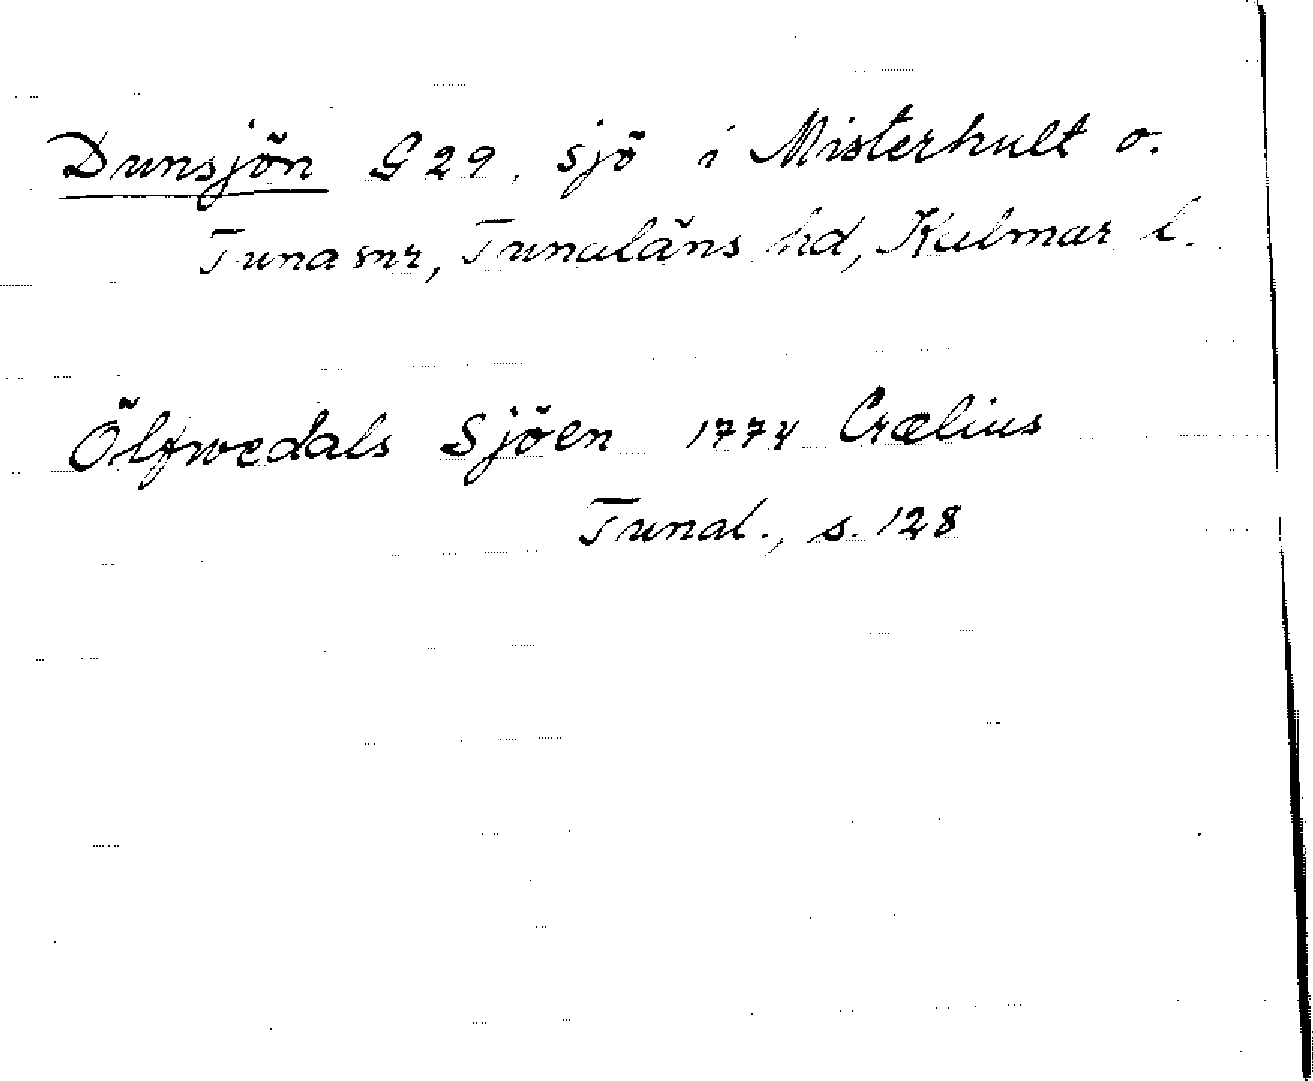 Dunsjön G 29. sjö i Misterhult o.
Tuna snr, Tunaläns hd, Kalmar l.
Ölfwedals Sjöen 1774 Crælius
Tunal., s. 128